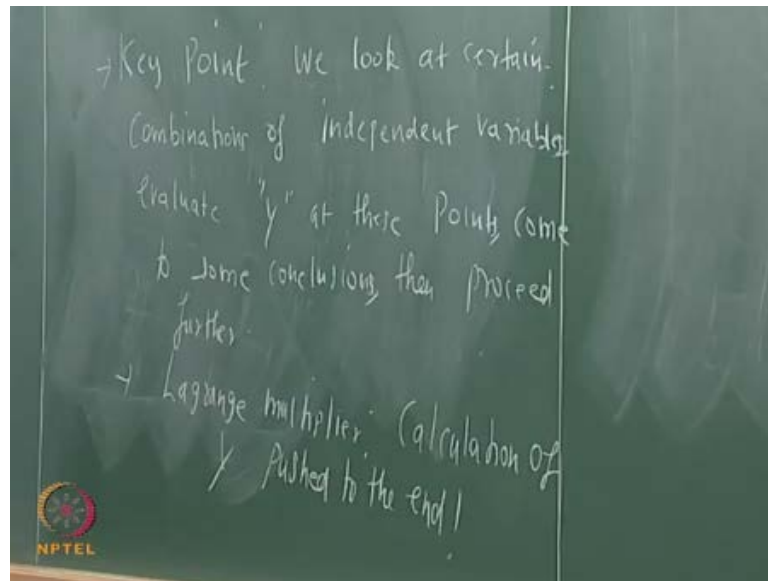 → Key Point: We look at certain
Combinations of independent variables,
evaluate "y" at these Points, come
to some conclusions, then proceed
further.
→ Lagrange multiplier: Calculation of
y pushed to the end!
NPTEL